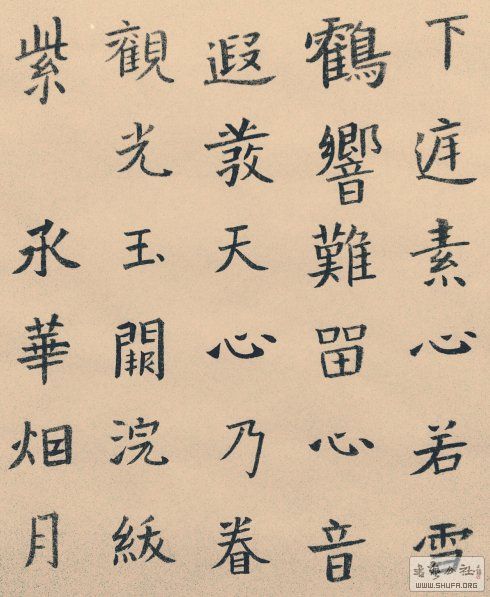 下庭素心若雪
鸖響難留心音
遐發天心乃眷
觀光玉闕浣紱
紫 承華烟月
WWW.SHUFA.ORG